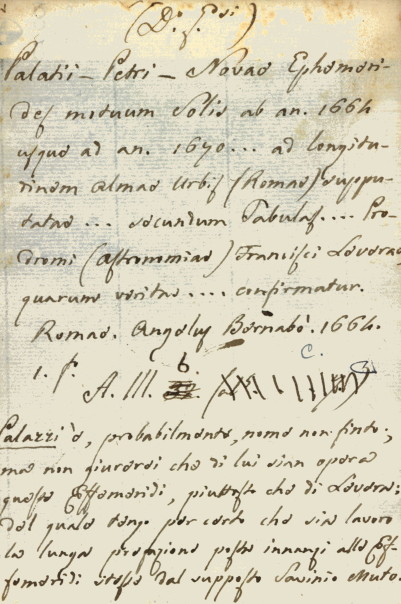 (D. f. Edi)
Palatii - Petri - Novae Ephemeri-
des motuum Solis ab an. 1664
usque ad an. 1670... ad longitu-
dinem Almae Urbis (Romae) suppu-
tatae ... secundum Tabulas.... Pro-
dromi (astronomiae) Francisci Levera,
quarum veritas.... confirmatur.
Romae. Angelus Bernabò. 1664.
C.
1. f. A. III. 6.
Palazzi è, probabilmente, nome non finto;
ma non giurerei che di lui sian opera
queste Effemeridi, piuttosto che di Levera;
del quale tengo per certo che sia lavoro
la lunga prefazione posta innanzi alle Ef-
femeridi stesse dal supposto Savinio Muto.